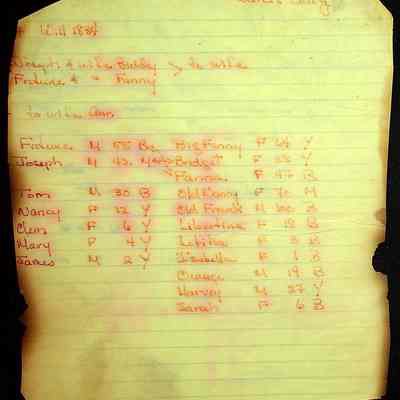 Will 1834
Joseph & wife Biddy to wife
Fortune & " Fanny
to wife Ann
Fortune M 55 B Big Fanny F 64 Y
Joseph M 45 Bridget F 55 Y
Fannie F 47 B
Tom M 30 B Old Fanny F 70 M
Nancy F 12 Y Old Frank M 60 B
Clem F 6 Y Libertine F 18 B
Mary F 4 Y Letitia F 3 B
James M 2 Y Isabella F 1 B
Orange M 19 B
Harvey M 27 Y
Sarah F 6 B